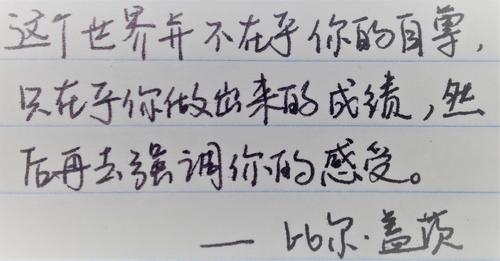 这个世界并不在乎你的自尊,
只在乎你做出来的成绩,然
后再去强调你的感受。
— 比尔·盖茨